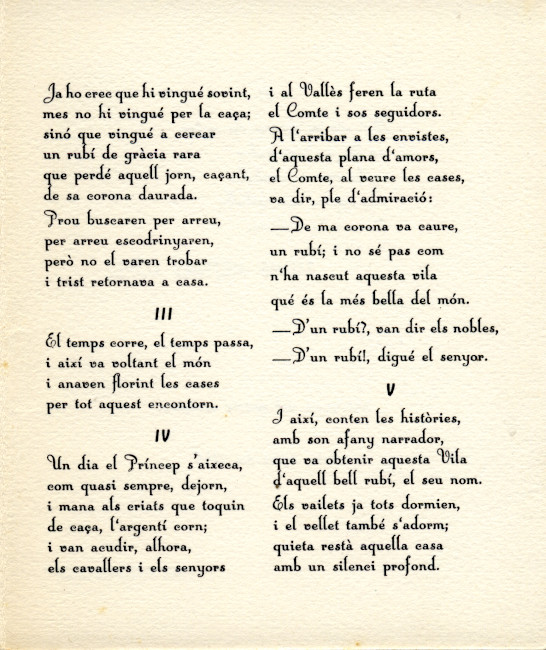 Ja ho crec que hi vingué sovint,
mes no hi vingué per la caça;
sinó que vingué a cercar
un rubí de gràcia rara
que perdé aquell jorn, caçant,
de sa corona daurada.
Prou buscaren per arreu,
per arreu escodrinyaren,
però no el varen trobar
i trist retornava a casa.
III
El temps corre, el temps passa,
i així va voltant el món
i anaven florint les cases
per tot aquest encontorn.
IV
Un dia el Príncep s'aixeca,
com quasi sempre, dejorn,
i mana als criats que toquin
de caça, l'argentí corn;
i van acudir, alhora,
els cavallers i els senyors
i al Vallès feren la ruta
el Comte i sos seguidors.
A l'arribar a les envistes,
d'aquesta plana d'amors,
el Comte, al veure les cases,
va dir, ple d'admiració:
—De ma corona va caure,
un rubí; i no sé pas com
n'ha nascut aquesta vila
qué és la més bella del món.
—D'un rubí?, van dir els nobles,
—D'un rubí!, digué el senyor.
V
I així, conten les històries,
amb son afany narrador,
que va obtenir aquesta Vila
d'aquell bell rubí, el seu nom.
Els vailets ja tots dormien,
i el vellet també s'adorm;
quieta restà aquella casa
amb un silenci profond.